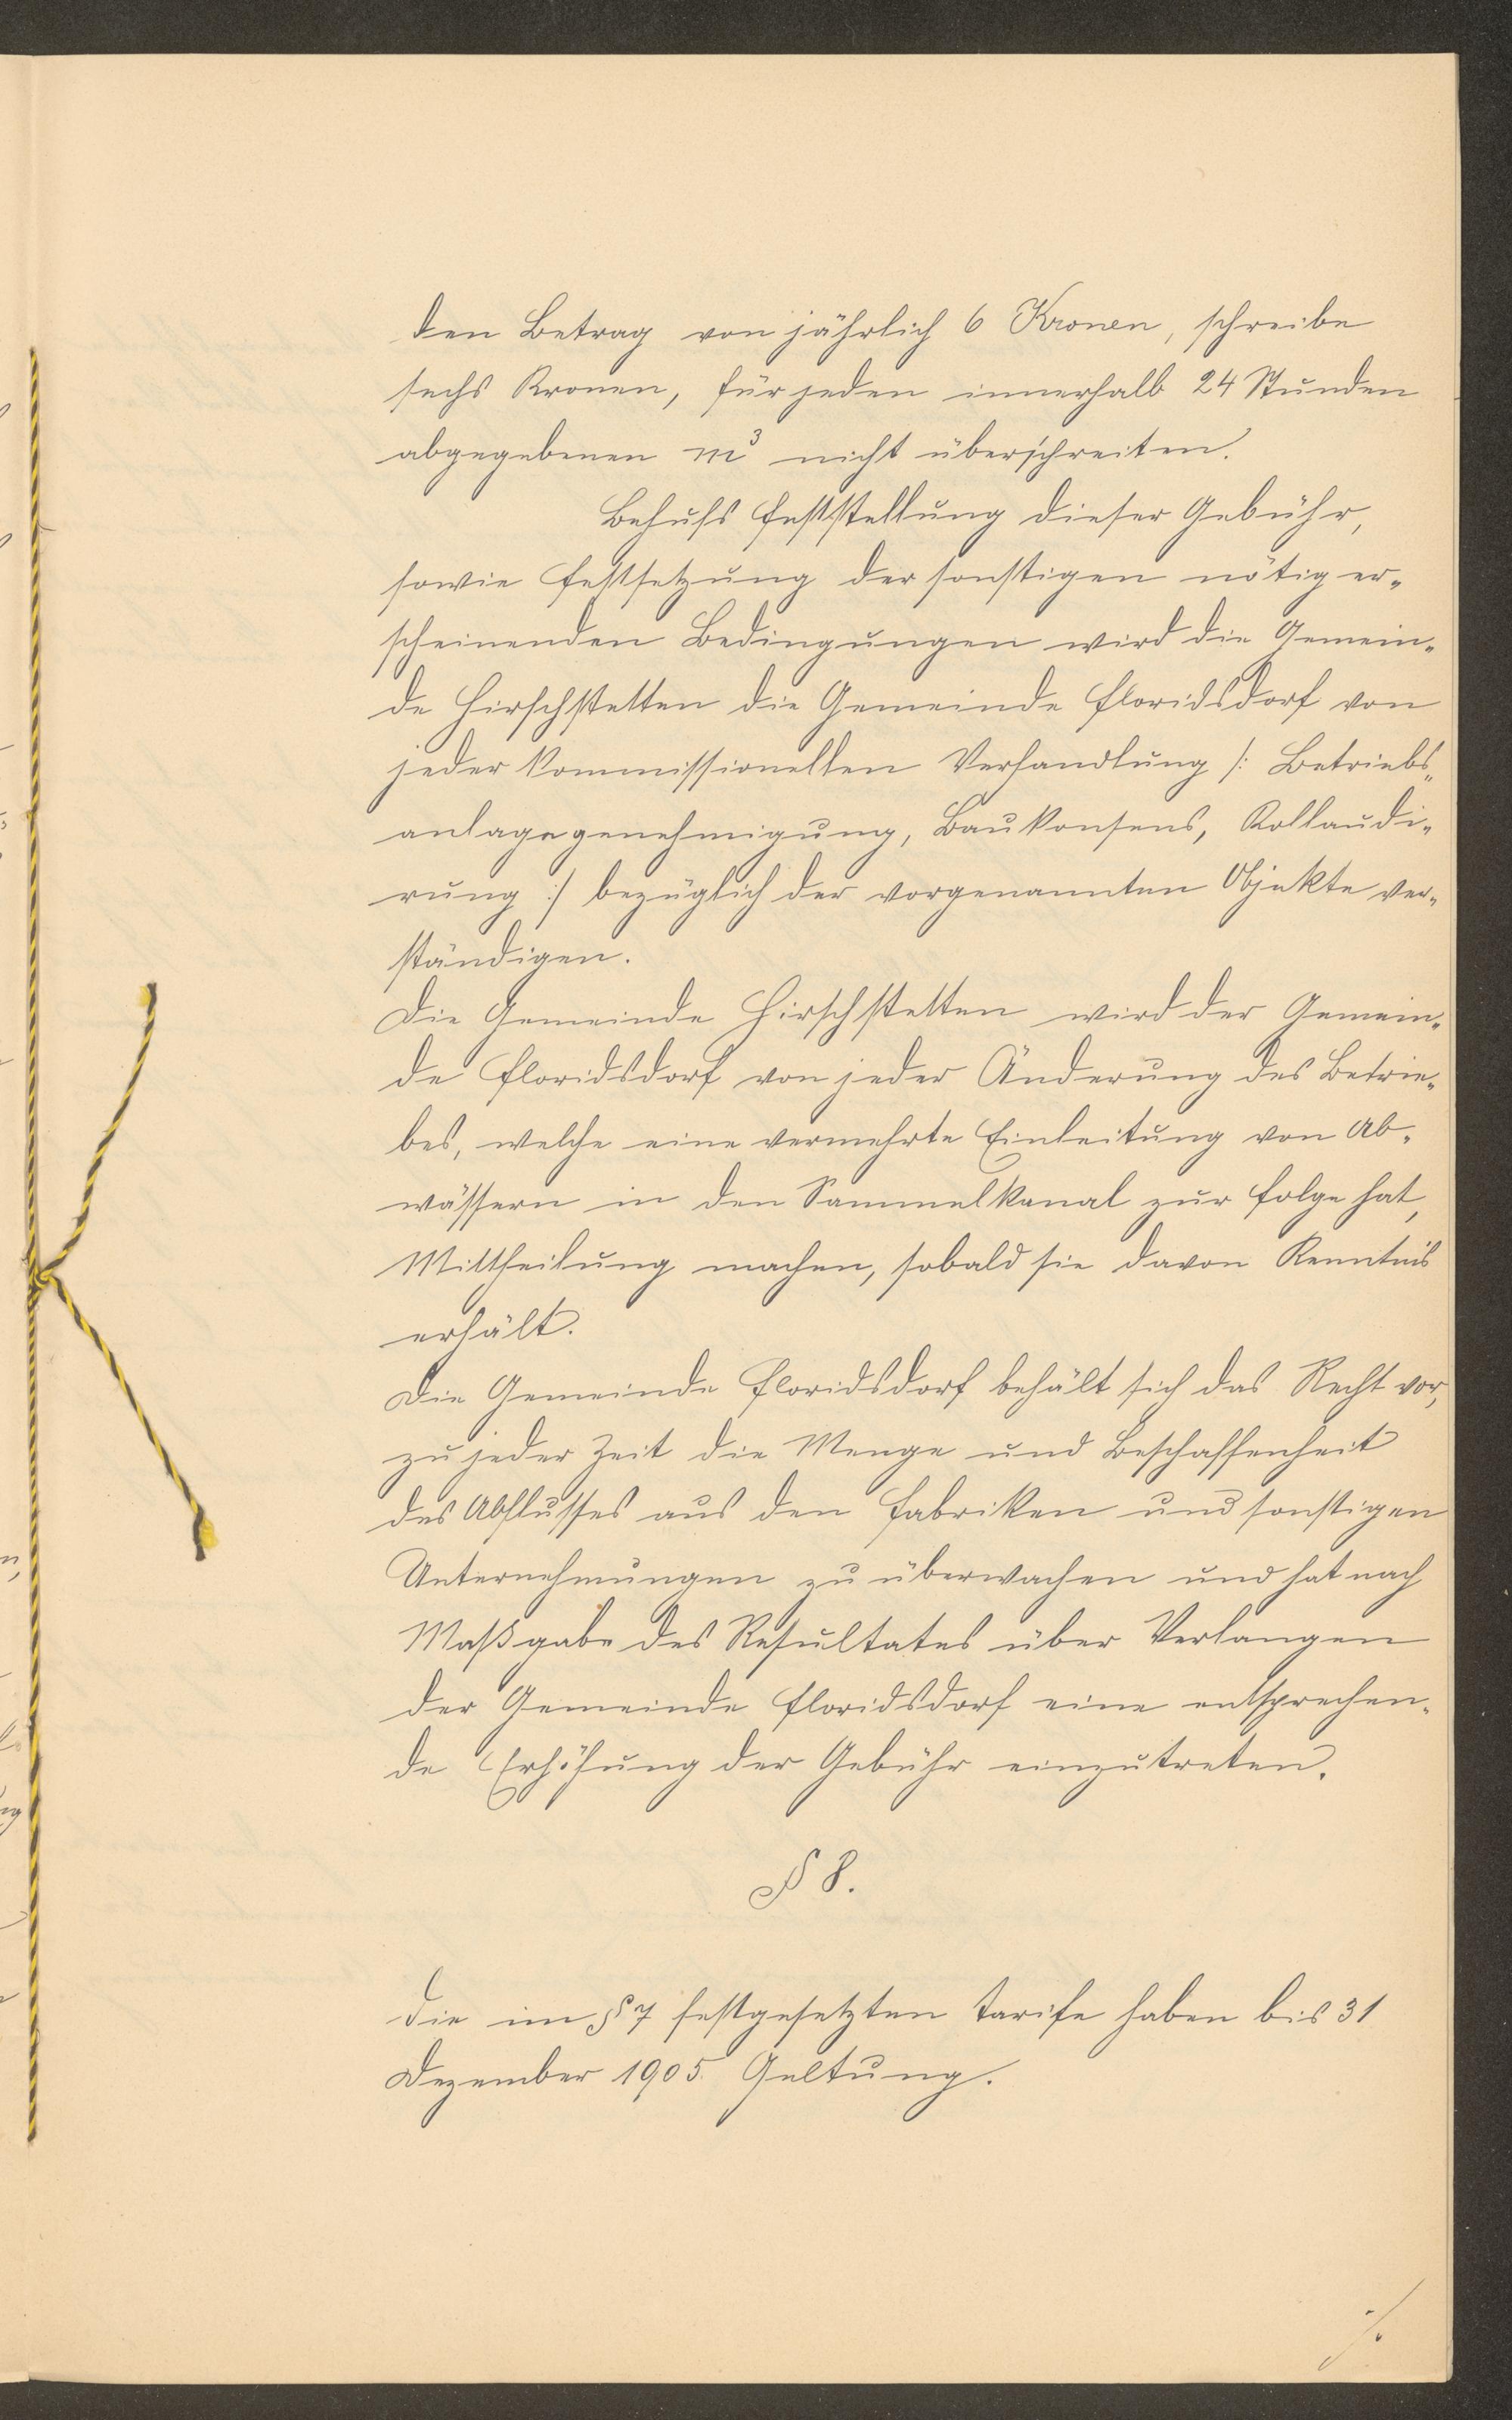 den Betrag von jährlich 6 Kronen, schreibe
sechs Kronen, für jeden innerhalb 24 Stunden
abgegebenen m³ nicht überschreiten.
Behufs Feststellung dieser Gebühr,
sowie Festsetzung der sonstigen nötig er-
scheinenden Bedingungen wird die Gemein-
de Hirschstetten die Gemeinde Floridsdorf von
jeder kommissionellen Verhandlung /: Betriebs-
anlagegenehmigung, Baukonsens, Kollaudi-
rung :/ bezüglich der vorgenannten Objekte ver-
ständigen.
Die Gemeinde Hirschstetten wird der Gemein-
de Floridsdorf von jeder Änderung des Betrie-
bes, welche eine vermehrte Einleitung von Ab-
wässern in den Sammelkanal zur Folge hat,
Mittheilung machen, sobald sie davon Kenntnis
erhält.
Die Gemeinde Floridsdorf behält sich das Recht vor,
zu jeder Zeit die Menge und Beschaffenheit
des Abflusses aus den Fabriken und sonstigen
Unternehmungen zu überwachen und hat nach
Maßgabe des Resultates über Verlangen
der Gemeinde Floridsdorf eine entsprechen-
de Erhöhung der Gebühr einzutreten.
§ 8.
Die im § 7 festgesetzten Tarife haben bis 31
Dezember 1905. Geltung.
./.